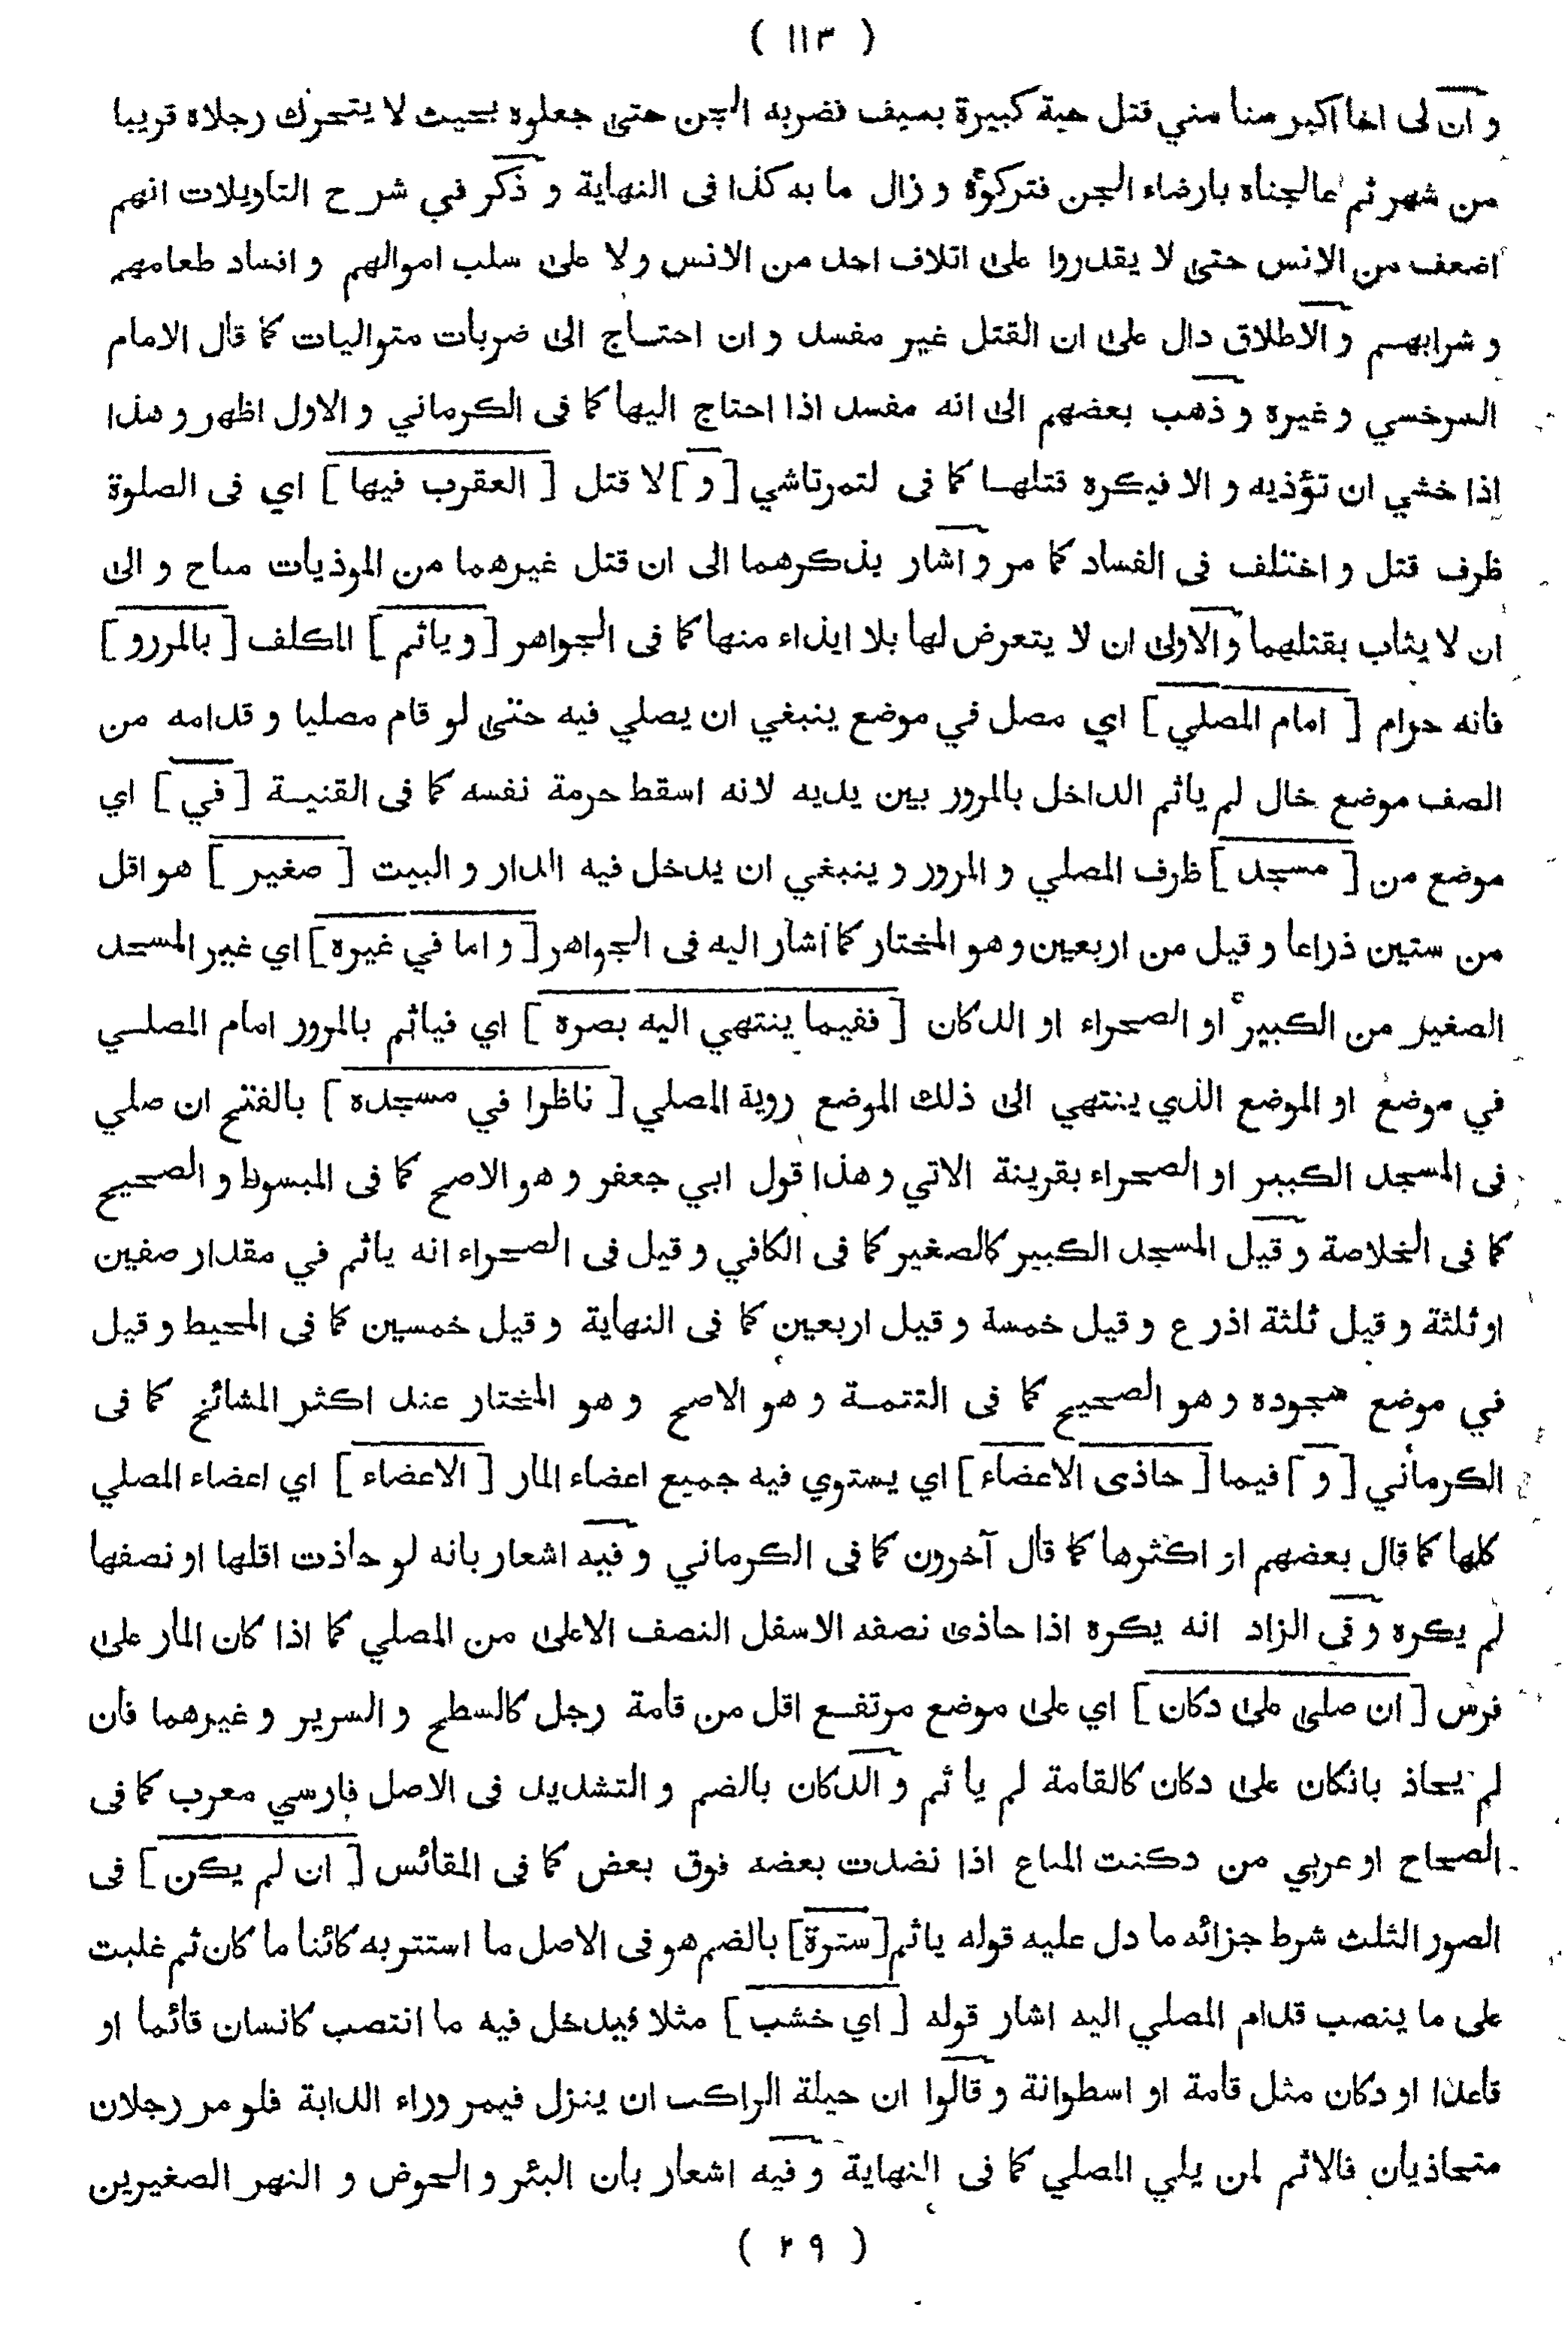 ( ١١٣ )
و ان لى اخا اكبر سنا مني قتل حية كبيرة بسيف فضربه الجن حتى جعلوه بحيث لا يتحرك رجلاه قريبا
من شهر ثم عالجناه بارضاء الجن فتركوه و زال ما به كذا فى النهاية و ذكر في شرح التاويلات انهم
اضعف من الانس حتى لا يقدروا على اتلاف احد من الانس ولا على سلب اموالهم و افساد طعامهم
و شرابهم و الاطلاق دال على ان القتل غير مفسد و ان احتاج الى ضربات متواليات كما قال الامام
السرخسي و غيره و ذهب بعضهم الى انه مفسد اذا احتاج اليها كما فى الكرماني و الاول اظهر و هذا
اذا خشي ان تؤذيه و الا فيكره قتلها كما فى لتمرتاشي [ و ] لا قتل [ العقرب فيها ] اي فى الصلوة
ظرف قتل و اختلف فى الفساد كما مر و اشار بذكرهما الى ان قتل غيرهما من الموذيات مباح و الى
ان لا يثاب بقتلهما و الاولى ان لا يتعرض لها بلا ايذاء منها كما فى الجواهر [ و ياثم ] المكلف [ بالمررو ]
فانه حرام [ امام المصلي ] اي مصل في موضع ينبغي ان يصلي فيه حتى لو قام مصليا و قدامه من
الصف موضع خال لم ياثم الداخل بالمرور بين يديه لانه اسقط حرمة نفسه كما فى القنية [ في ] اي
موضع من [ مسجد ] ظرف المصلي و المرور و ينبغي ان يدخل فيه الدار و البيت [ صغير ] هو اقل
من ستين ذراعا و قيل من اربعين و هو المختار كما اشار اليه فى الجواهر [ و اما في غيره ] اي غير المسجد
الصغير من الكبير او الصحراء او الدكان [ ففيما ينتهي اليه بصره ] اي فياثم بالمرور امام المصلي
في موضع او الموضع الذي ينتهي الى ذلك الموضع روية المصلي [ ناظرا في مسجده ] بالفتح ان صلي
فى المسجد الكبير او الصحراء بقرينة الاتي و هذا قول ابي جعفر و هو الاصح كما فى المبسوط و الصحيح
كما فى الخلاصة و قيل المسجد الكبير كالصغير كما فى الكافي و قيل فى الصحراء انه ياثم في مقدار صفين
او ثلثة و قيل ثلثة اذرع و قيل خمسة و قيل اربعين كما فى النهاية و قيل خمسين كما فى المحيط و قيل
في موضع سجوده و هو الصحيح كما فى التتمة و هو الاصح و هو المختار عند اكثر المشائخ كما فى
الكرماني [ و ] فيما [ حاذى الاعضاء ] اي يستوي فيه جميع اعضاء المار [ الاعضاء ] اي اعضاء المصلي
كلها كما قال بعضهم او اكثرها كما قال آخرون كما فى الكرماني و فيه اشعار بانه لو حاذت اقلها او نصفها
لم يكره و في الزاد انه يكره اذا حاذى نصفه الاسفل النصف الاعلى من المصلي كما اذا كان المار على
فرس [ ان صلى على دكان ] اي على موضع مرتفع اقل من قامة رجل كالسطح و السرير و غيرهما فان
لم يحاذ بانكان على دكان كالقامة لم ياثم و الدكان بالضم و التشديد فى الاصل فارسي معرب كما فى
الصحاح او عربي من دكنت المباع اذا نضدت بعضه فوق بعض كما فى المقائس [ ان لم يكن ] فى
الصور الثلث شرط جزائه ما دل عليه قوله ياثم [ سترة ] بالضم هو فى الاصل ما استتر به كائنا ما كان ثم غلبت
على ما ينصب قدام المصلي اليه اشار قوله [ اي خشب ] مثلا فيدخل فيه ما انتصب كانسان قائما او
قاعدا او دكان مثل قامة او اسطوانة و قالوا ان حيلة الراكب ان ينزل فيمر وراء الدابة فلو مر رجلان
متحاذيان فالاثم لمن يلي المصلي كما فى النهاية و فيه اشعار بان البئر و الحوض و النهر الصغيرين
( ٢٩ )